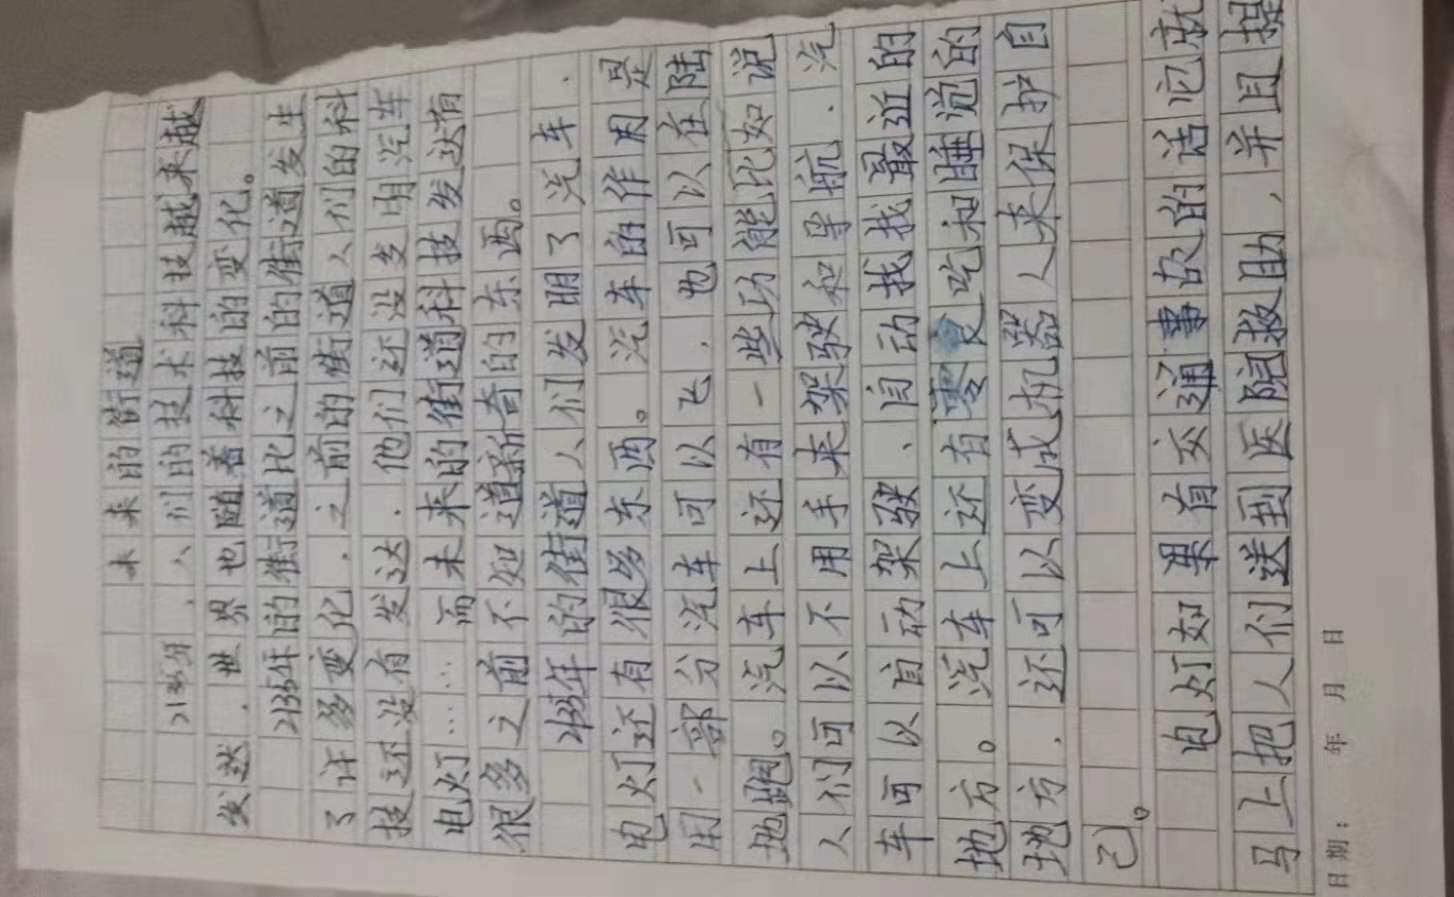 未来的街道
2135年，人们的技术科技越来越
发达，世界也随着科技的变化。
2135年的街道比之前的街道发生
了许多变化，之前的街道人们的科
技还没有发达，他们还没发明汽车
电灯……而未来的街道科技发达有
很多之前不如道新奇的东西。
2135年的街道人们发明了汽车，
电灯还有很多东西。汽车的作用是
用一部分汽车可以飞，也可以在陆
地跑。汽车上还有一些功能比如说
人们可以不用手来架驶和导航，汽
车可以自动架驶、自动找找最近的
地方。汽车上还有零食吃和睡觉的
地方，还可以变成机器人来保护自
己。
电灯如果有交通事故的话它就
马上把人们送到医院救助，并且提
日期： 年 月 日